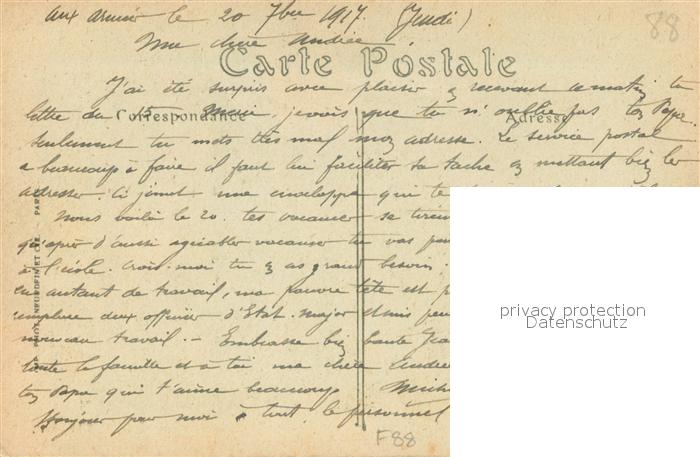 aux armées le 20 7bre 1917. (Jeudi)
88
Ma chère Andrée
Carte Postale
J'ai été surpris avec plaisir en recevant ce matin ta
lettre du 15. Merci, je vois que tu n'oublie pas ton Papa.
Correspondance
Adresse
seulement tu mets très mal mon adresse. Le service postal
a beaucoup à faire il faut lui faciliter sa tache en mettant bien les
adresses. Ci joint une enveloppe qui te
Nous voilà le 20. tes vacances se
qu'après d'aussi agréables vacances tu vas
à l'école. Crois-moi tu en as grand besoin.
en autant de travail, ma pauvre tête est
remplace deux officiers d'Etat-Major et suis
nouveau travail. - Embrasse bien
toute la famille et à toi ma chère Andrée
ton Papa qui t'aime beaucoup
Bonjour pour moi à tout le personnel
F88
PHOT. NEURDEIN ET CIE. PAR
privacy protection
Datenschutz